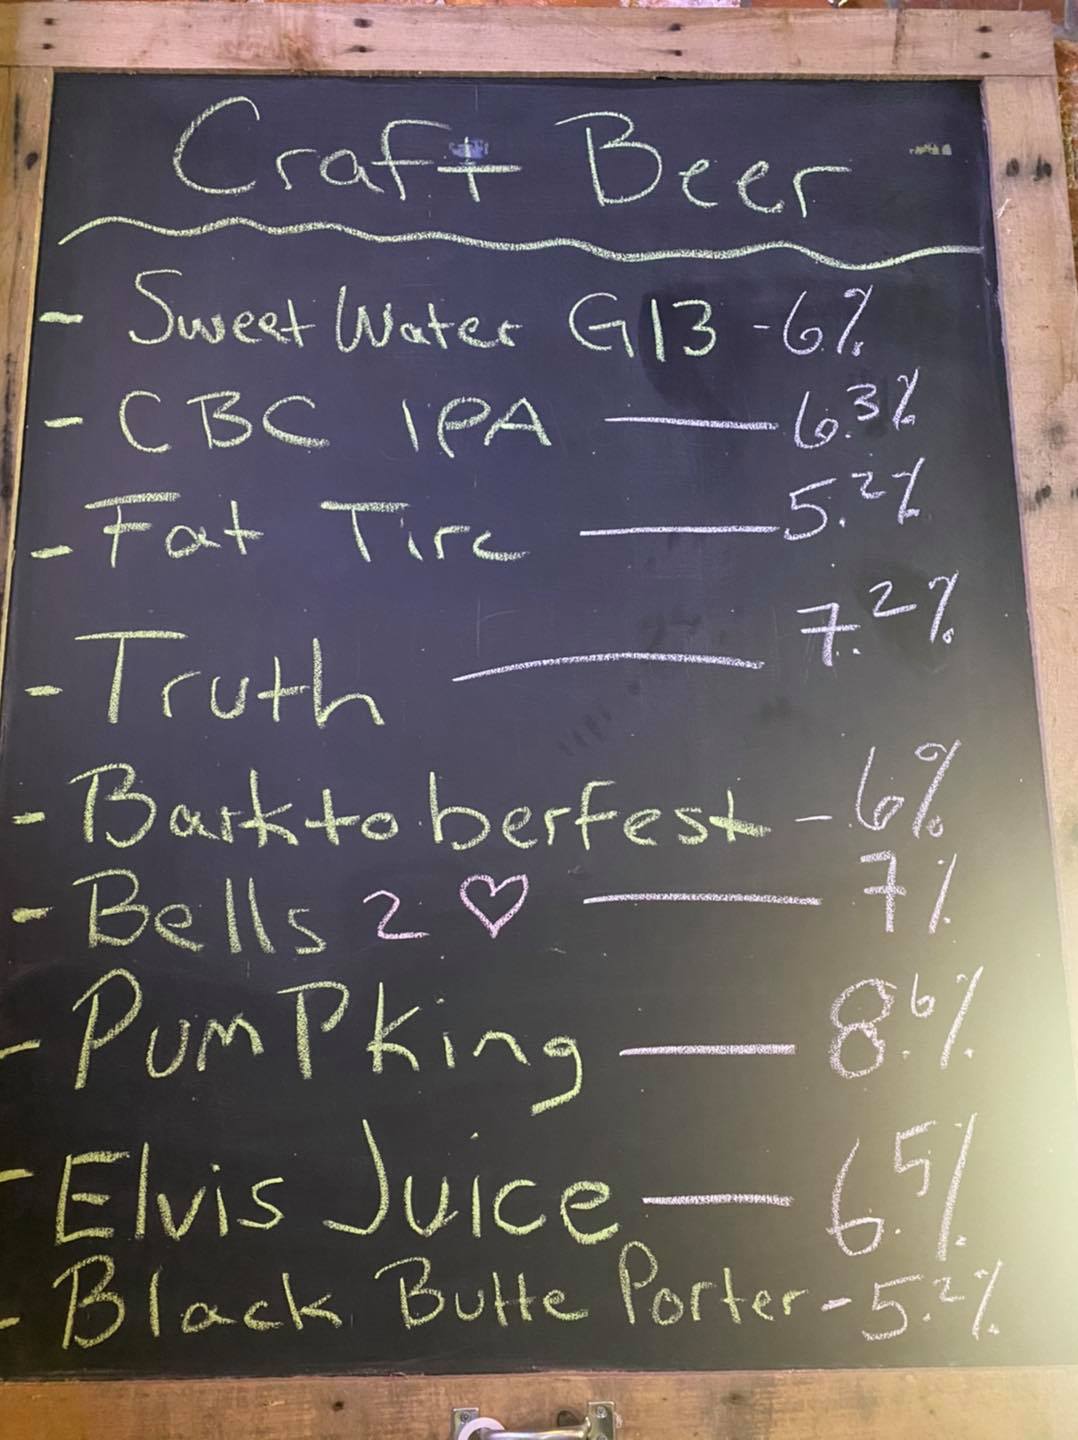 Craft Beer
- Sweet Water G13 - 6%
- CBC IPA — 6.3%
- Fat Tire — 5.2%
- Truth — 7.2%
- Barktoberfest - 6%
- Bells 2 ♡ — 7%
- PumPking — 8.6%
- Elvis Juice — 6.5%
- Black Butte Porter - 5.2%